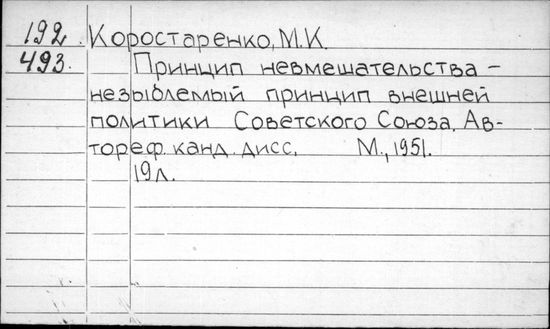 192. Коростаренко, М.К.
493. Принцип невмешательства –
незыблемый принцип внешней
политики Советского Союза. Ав-
тореф. канд. дисс. М., 1951.
19л.